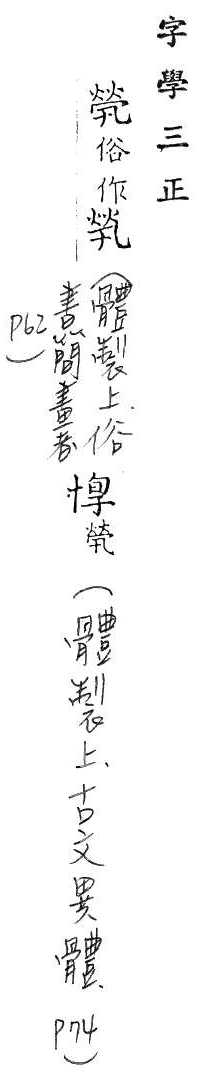 字學三正
煢俗作
(體製上．俗
書簡畫者
P62)
惸
煢
(體製上．古文異體 P74)